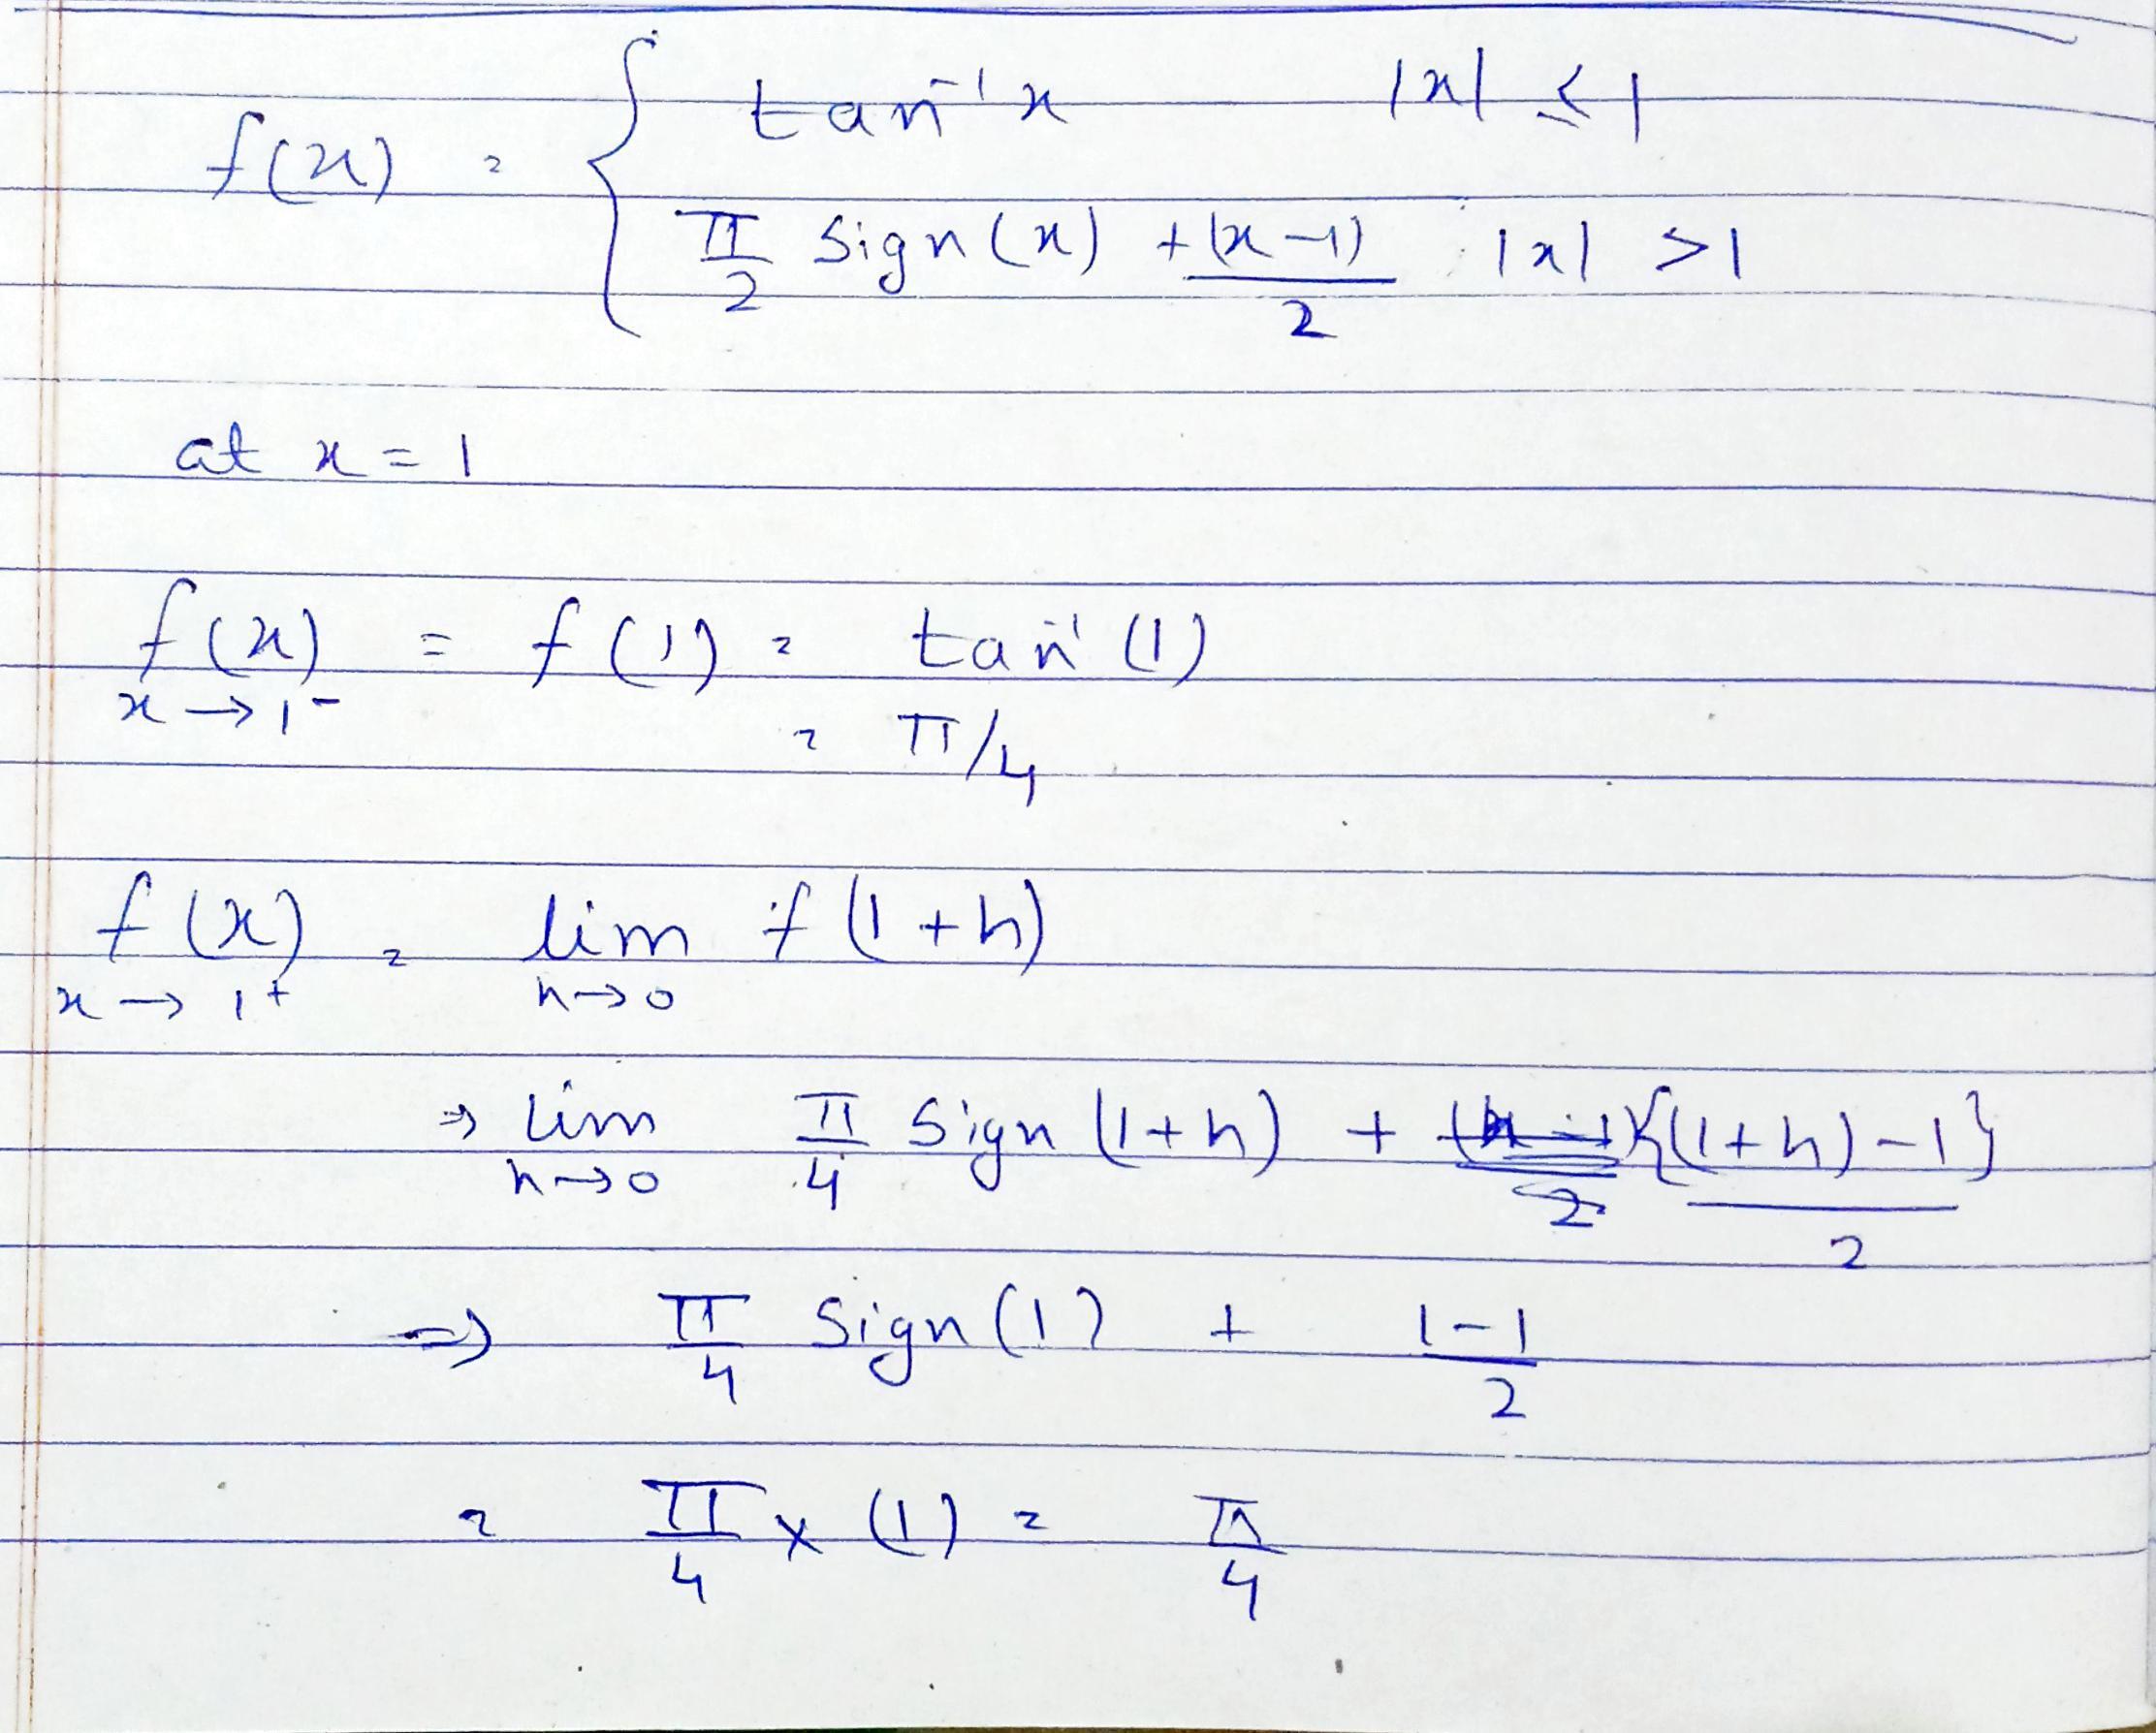 f(x) = { tan⁻¹x |x| ≤ 1
π/2 Sign(x) + (x-1)/2 |x| > 1
at x = 1
f(x) = f(1) = tan⁻¹(1)
x → 1⁻
= π/4
f(x) = lim f(1+h)
x → 1⁺ h→0
⇒ lim π/4 Sign(1+h) + {(1+h)-1}/2
h→0
⇒ π/4 Sign(1) + 1-1/2
= π/4 × (1) = π/4